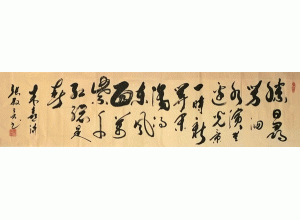 勝日尋
芳泗
水濱無
邊光景
一時新
等閒
識得
東風
面萬
紫千
紅總是
春
朱熹詩